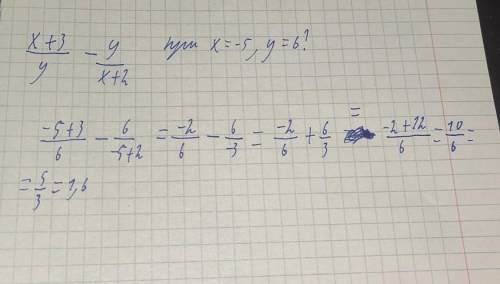 (x+3)/y − y/(x+2) при x=-5, y=6?
(-5+3)/6 − 6/(-5+2) = -2/6 − 6/-3 = -2/6 + 6/3 = (-2+12)/6 = 10/6 =
= 5/3 = 1,6